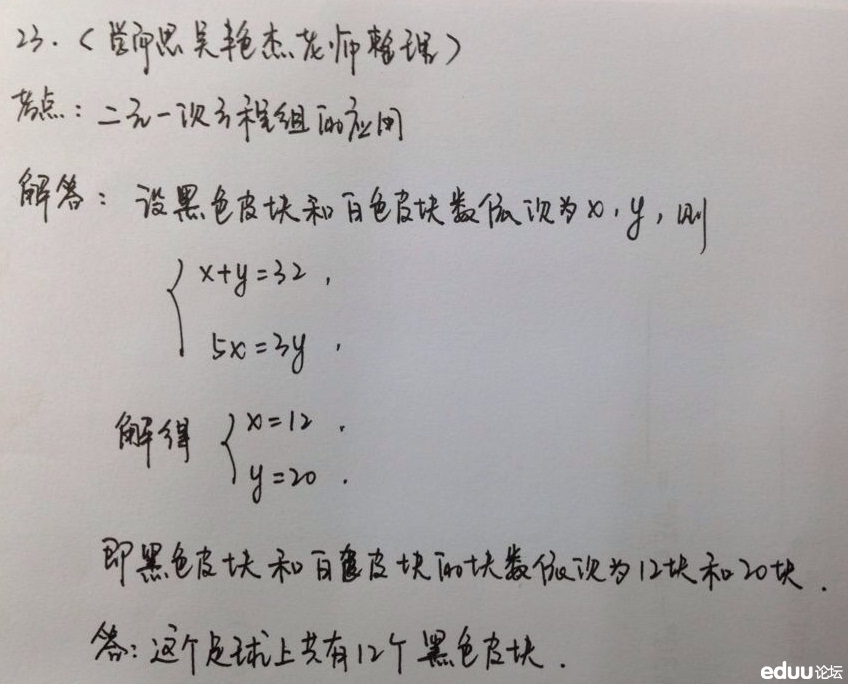 23.(学而思吴艳杰老师整理)
考点:二元一次方程组的应用
解答:设黑色皮块和白色皮块数依次为x,y,则
x+y=32,
5x=3y,
解得 x=12,
y=20.
即黑色皮块和白色皮块的块数依次为12块和20块.
答:这个足球上共有12个黑色皮块.
eduu论坛